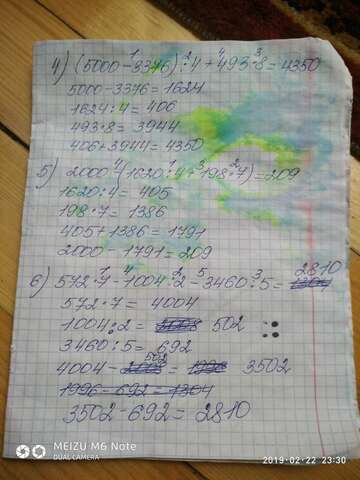 4) (5000-3376):4+493·8=4350
5000-3376=1624
1624:4=406
493·8=3944
406+3944=4350
5) 2000-(1620:4+198·7)=209
1620:4=405
198·7=1386
405+1386=1791
2000-1791=209
6) 572·7-1004:2-3460:5=1304 2810
572·7=4004
1004:2=2008 502
3460:5=692
4004-2008 502=1996 3502
1996-692=1304
3502-692=2810
MEIZU M6 Note
DUAL CAMERA
2019-02-22 23:30